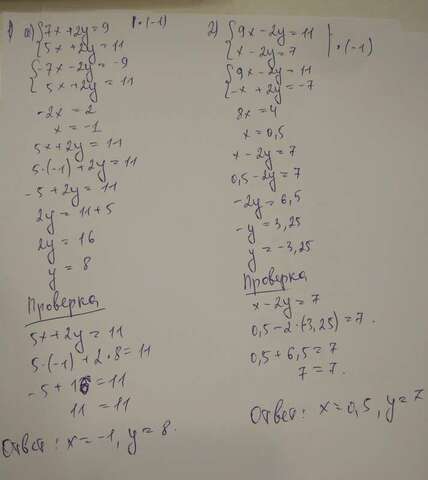 1) а) { 7x + 2y = 9 | · (-1)
5x + 2y = 11
{ -7x - 2y = -9
5x + 2y = 11
-2x = 2
x = -1
5x + 2y = 11
5·(-1) + 2y = 11
-5 + 2y = 11
2y = 11 + 5
2y = 16
y = 8
Проверка
5x + 2y = 11
5·(-1) + 2·8 = 11
-5 + 16 = 11
11 = 11
Ответ: x = -1, y = 8.
2) { 9x - 2y = 11
x - 2y = 7 } · (-1)
{ 9x - 2y = 11
-x + 2y = -7
8x = 4
x = 0,5
x - 2y = 7
0,5 - 2y = 7
-2y = 6,5
-y = 3,25
y = -3,25
Проверка
x - 2y = 7
0,5 - 2·(-3,25) = 7.
0,5 + 6,5 = 7
7 = 7.
Ответ: x = 0,5, y = 7